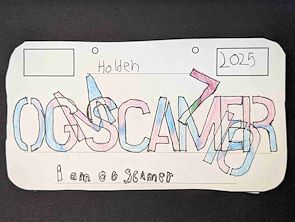 Holden
2025
OGSCAMER
I am ao scamer